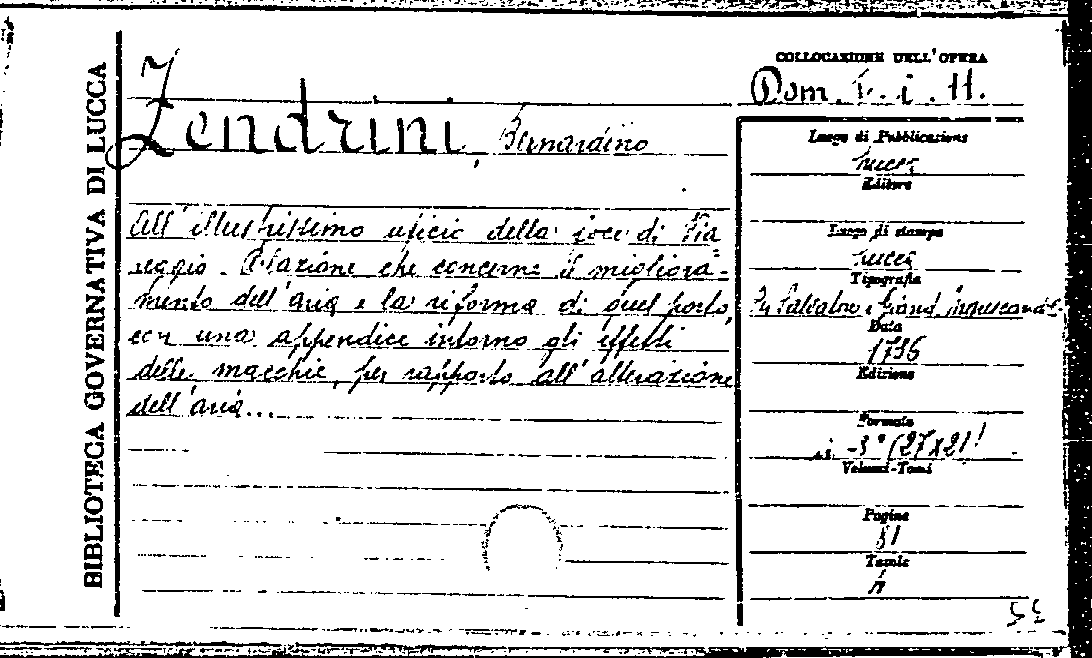 BIBLIOTECA GOVERNATIVA DI LUCCA
Zendrini, Bernardino
All' illustrissimo uficio della foce di Via
reggio. Relazione che concerne il migliora-
mento dell'aria e la riforma di quel porto,
con una appendice intorno gli effetti
delle macchie, per rapporto all'alterazione
dell'aria...
COLLOCAZIONE DELL'OPERA
Dom. i. 11.
Luogo di Pubblicazione
Lucca
Editore
Luogo di stampa
Lucca
Tipografia
Salvatore e Giand.
Data
1736
Edizione
Formato
(27x21)
Volumi-Tomi
Pagine
51
Tavole